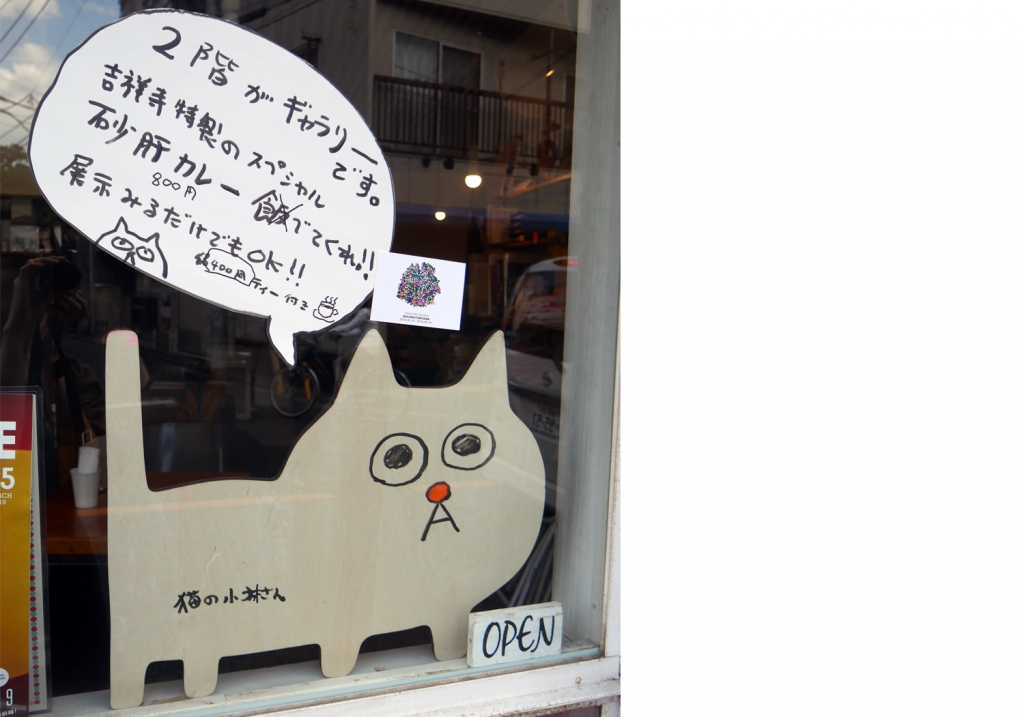 2階がギャラリーです。
吉祥寺特製のスプシャル
砂肝カレー 飯でてくれ!!
800円
展示みるだけでもOK!!
400円 ティー付き
猫の小林さん
OPEN
E
5
9